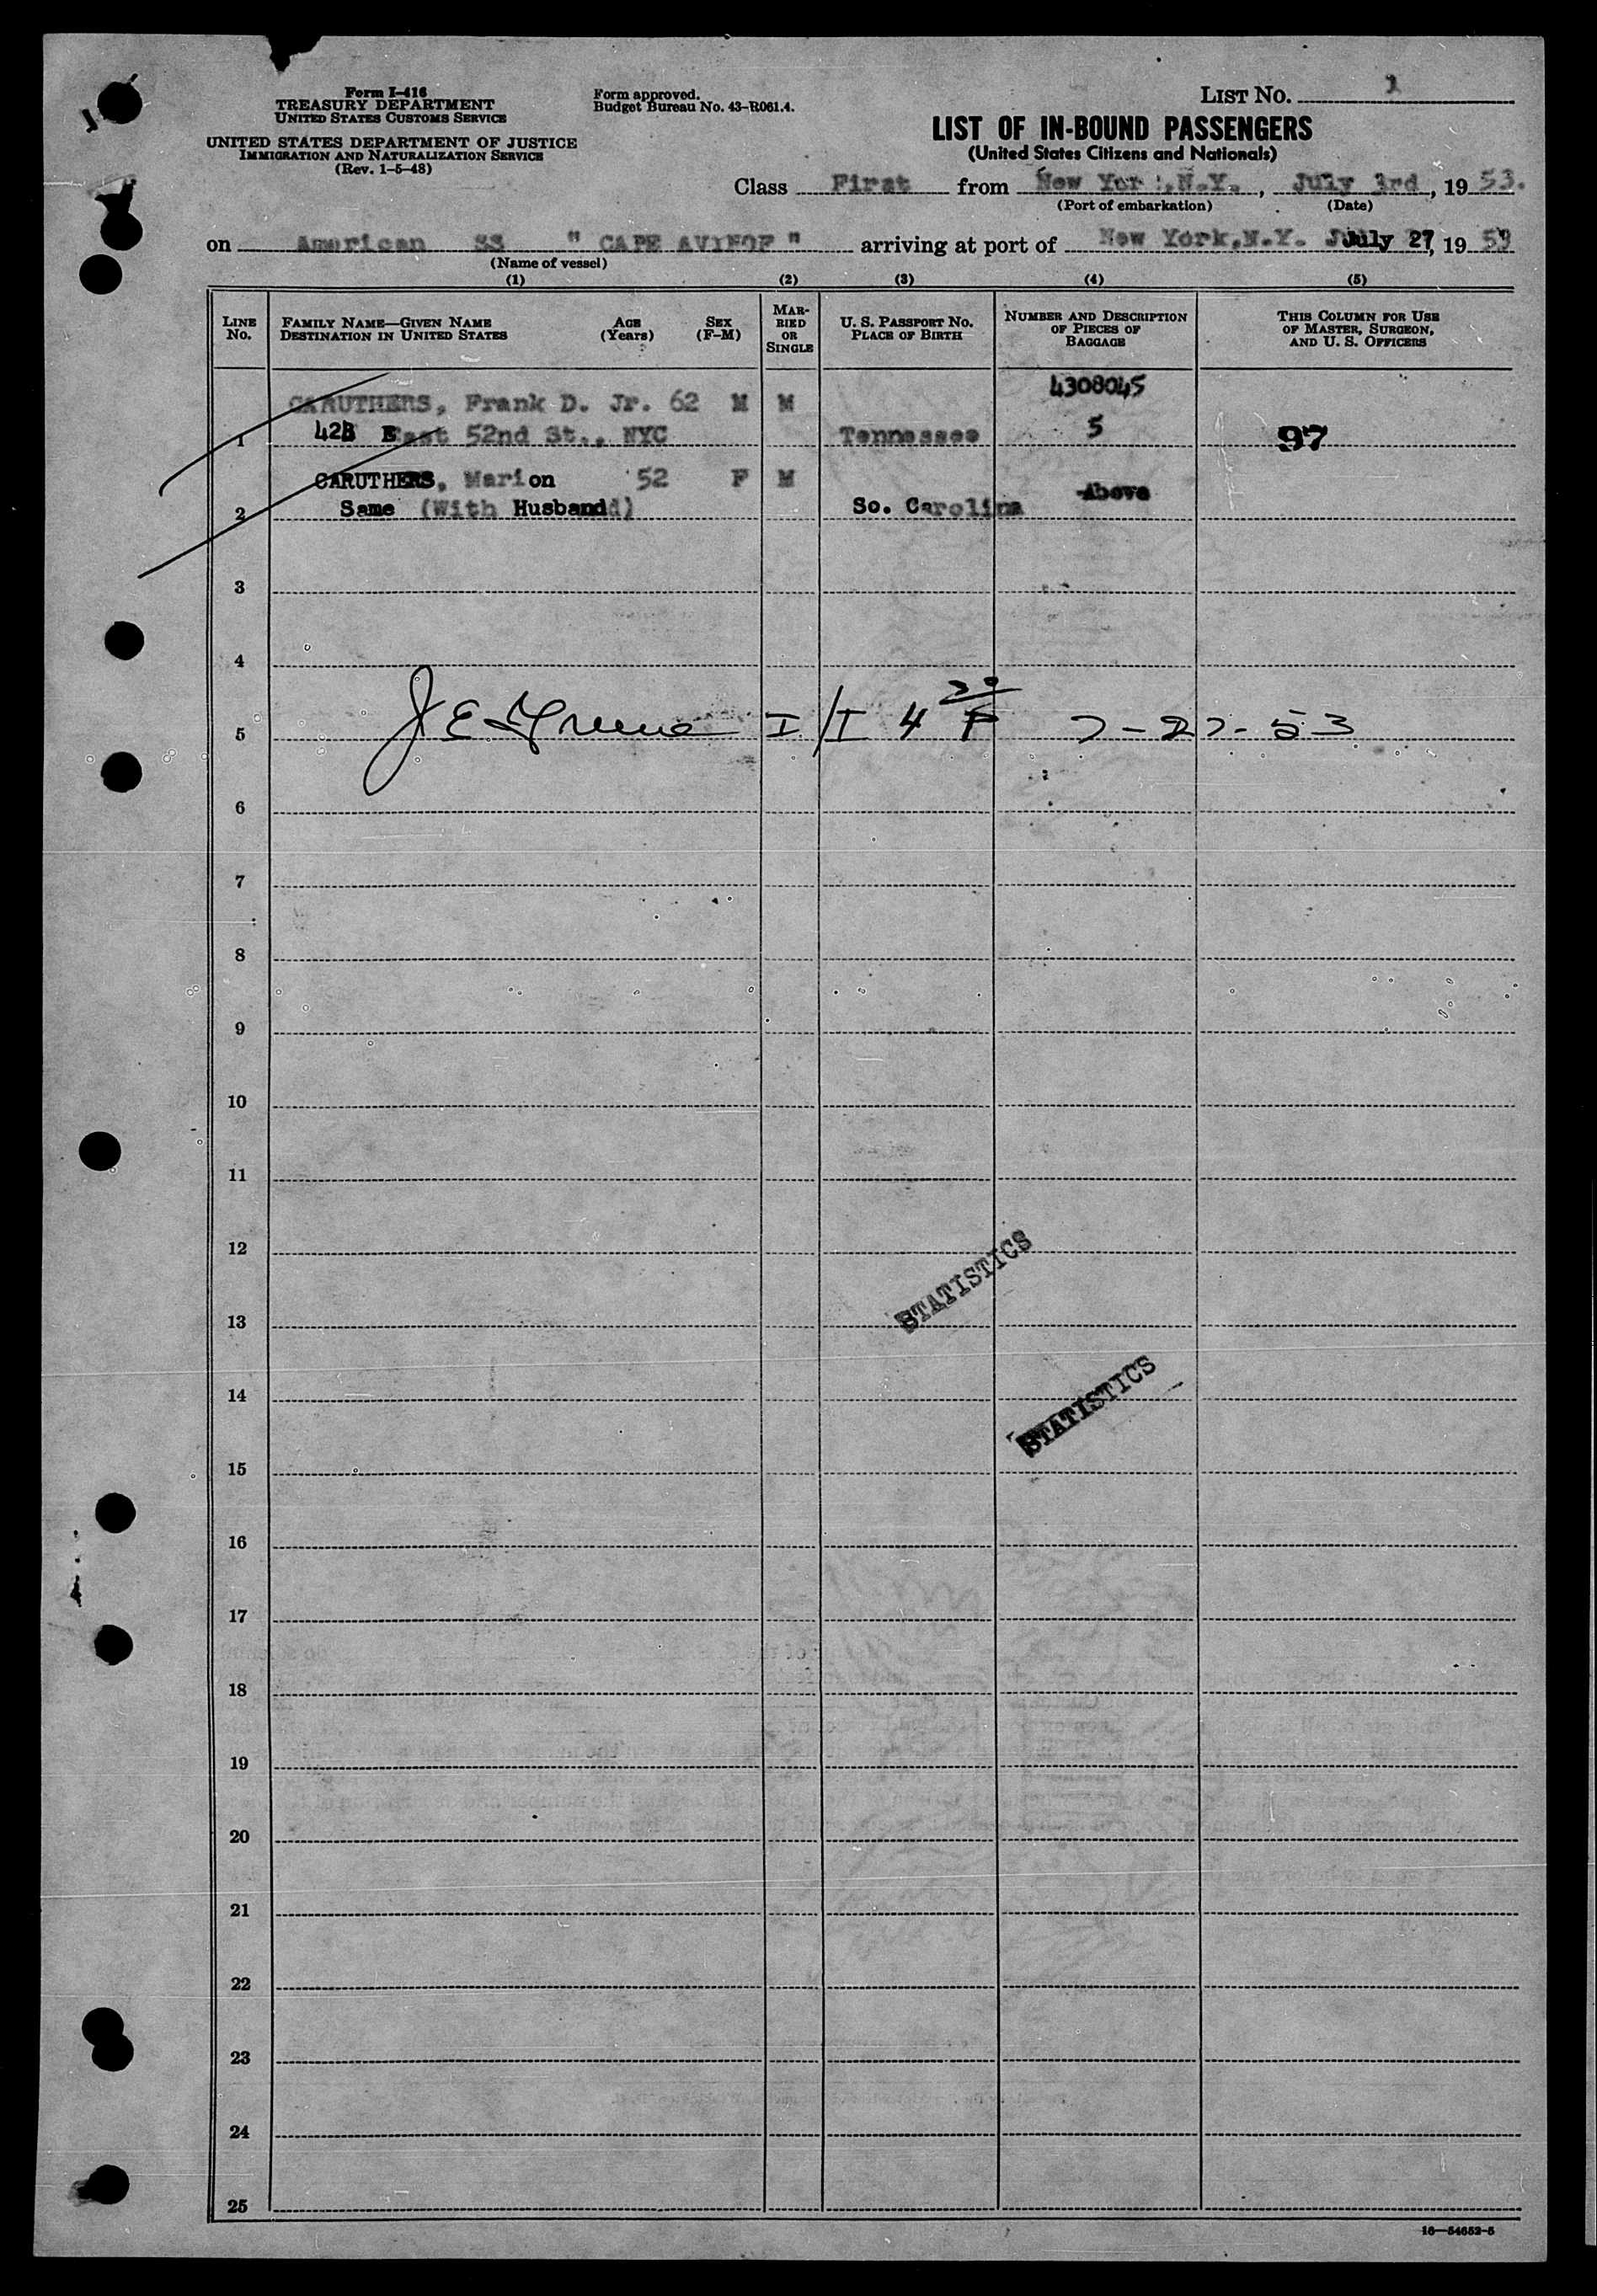 Form I-416
TREASURY DEPARTMENT
UNITED STATES CUSTOMS SERVICE
UNITED STATES DEPARTMENT OF JUSTICE
IMMIGRATION AND NATURALIZATION SERVICE
(Rev. 1-5-48)
Form approved.
Budget Bureau No. 43-R061.4.
LIST NO. 1
LIST OF IN-BOUND PASSENGERS
(United States Citizens and Nationals)
Class First from New York, N.Y., July 3rd, 1953.
(Port of embarkation) (Date)
on American SS " CAPE AVINOF " arriving at port of New York, N.Y. July 27, 1953
(Name of vessel)
(1) (2) (3) (4) (5)
LINE NO.
FAMILY NAME—GIVEN NAME AGE SEX
DESTINATION IN UNITED STATES (Years) (F-M)
MARRIED OR SINGLE
U. S. PASSPORT NO.
PLACE OF BIRTH
NUMBER AND DESCRIPTION
OF PIECES OF
BAGGAGE
THIS COLUMN FOR USE
OF MASTER, SURGEON,
AND U. S. OFFICERS
4308045
CARUTHERS, Frank D. Jr. 62 M M
1 East 52nd St., NYC Tennessee 5 97
CARUTHERS, Marion 52 F M
2 Same (With Husband) So. Carolina Above
3
4
5 I/I 4 30 P 7-27-53
6
7
8
9
10
11
12
STATISTICS
13
14
STATISTICS
15
16
17
18
19
20
21
22
23
24
25
16—54652-5